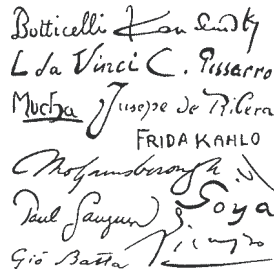 Botticelli Kandinsky
L da Vinci C. Pissarro
Mucha Jusepe de Ribera
FRIDA KAHLO
Gainsborough
Paul Gauguin Goya
Gio Batta